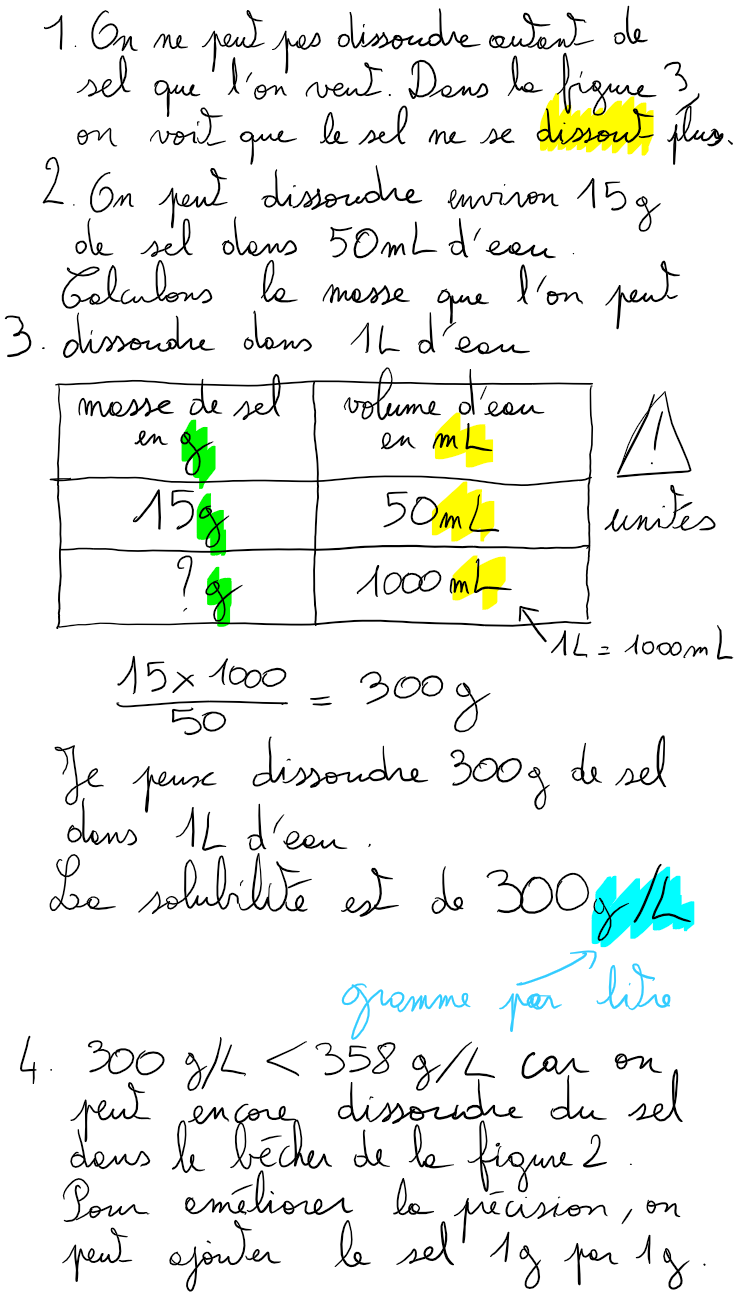 1. On ne peut pas dissoudre autant de
sel que l'on veut. Dans la figure 3,
on voit que le sel ne se dissout plus.
2. On peut dissoudre environ 15g
de sel dans 50mL d'eau.
Calculons la masse que l'on peut
3. dissoudre dans 1L d'eau
masse de sel
en g
volume d'eau
en mL
15g
50mL
? g
1000 mL
!
unités
1L = 1000mL
15 × 1000
50
= 300g
Je peux dissoudre 300g de sel
dans 1L d'eau.
La solubilité est de 300g/L
gramme par litre
4. 300 g/L < 358 g/L car on
peut encore dissoudre du sel
dans le bécher de la figure 2.
Pour améliorer la précision, on
peut ajouter le sel 1g par 1g.